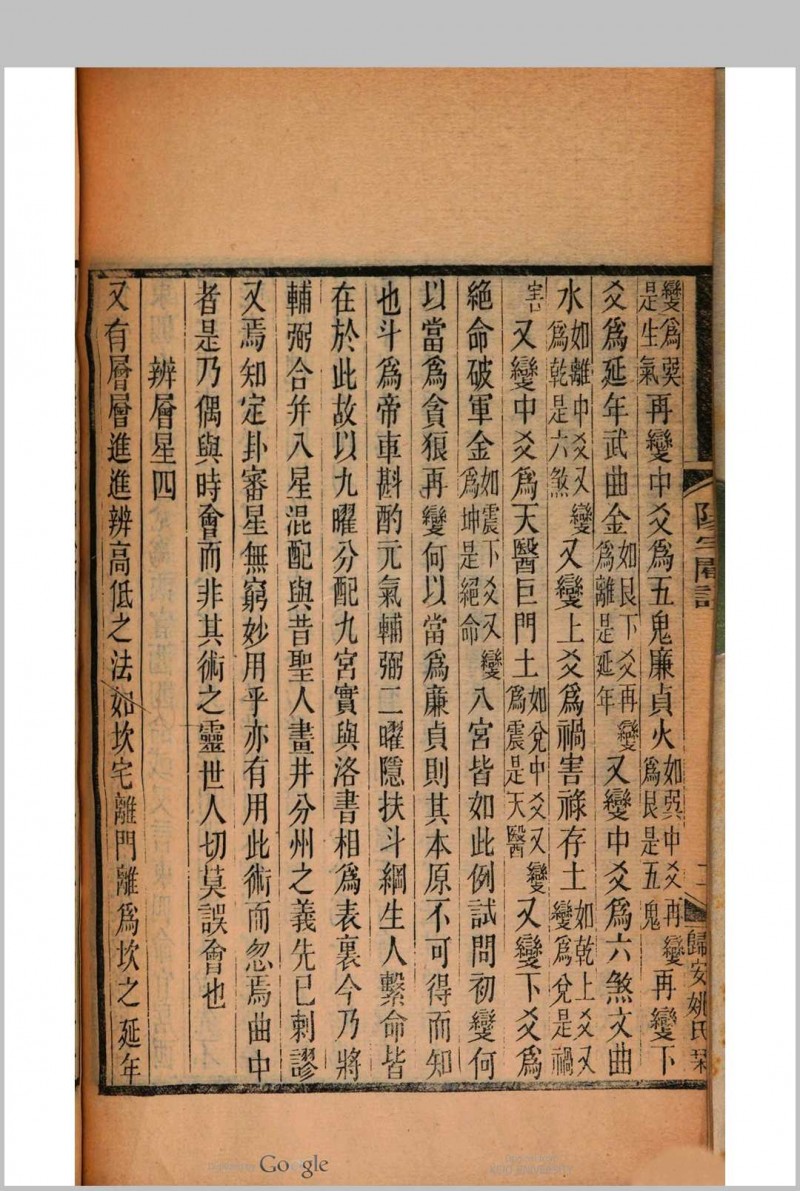 歸安姚氏栞
變爲巽是生氣再變中爻爲五鬼廉貞火如巽中爻再變爲艮是五鬼再變下
爻爲延年武曲金如艮下爻再變爲離是延年又變中爻爲六煞文曲
水如離中爻又變爲乾是六煞又變上爻爲禍害祿存土如乾上爻又變爲兌是禍
害又變中爻爲天醫巨門土如兌中爻又變爲震是天醫又變下爻爲
絕命破軍金如震下爻又變爲坤是絕命八宮皆如此例試問初變何
以當爲貪狼再變何以當爲廉貞則其本原不可得而知
也斗爲帝車斟酌元氣輔弼二曜隱扶斗綱生人繫命皆
在於此故以九曜分配九宮實與洛書相爲表裏今乃將
輔弼合幷八星混配與昔聖人畫井分州之義先已刺謬
又焉知定卦審星無窮妙用乎亦有用此術而忽焉曲中
者是乃偶與時會而非其術之靈世人切莫誤會也
辨層星四
又有層層進進辨高低之法如坎宅離門離爲坎之延年
Google